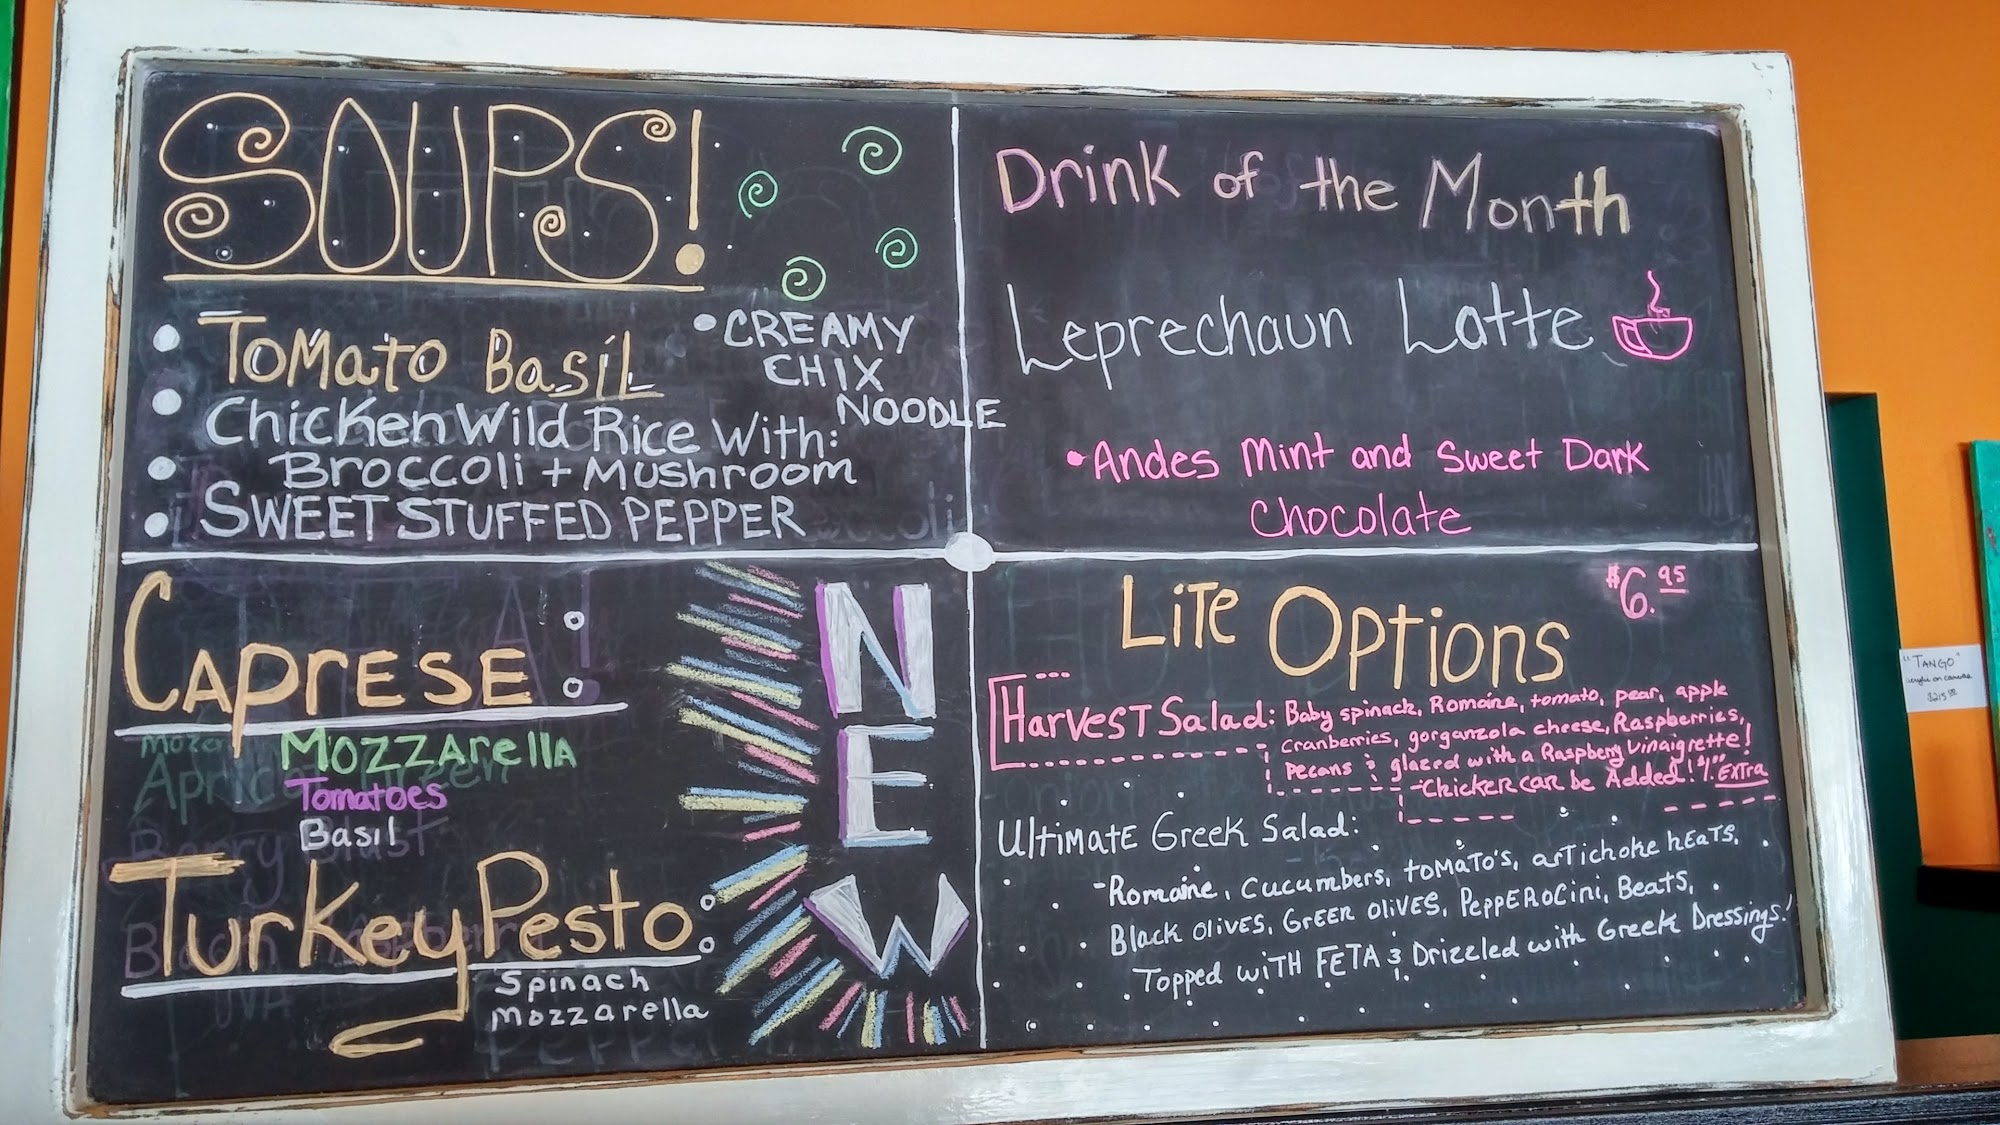 SOUPS!
• Tomato Basil
• Chicken Wild Rice With:
• Broccoli + Mushroom
• SWEET STUFFED PEPPER
• CREAMY
CHIX
NOODLE
Drink of the Month
Leprechaun Latte
• Andes Mint and Sweet Dark
Chocolate
CAPRESE:
MOZZArella
Tomatoes
Basil
Turkey Pesto:
Spinach
Mozzarella
NEW
LiTe Options
$6.95
HarvesT Salad: Baby spinach, Romaine, tomato, pear, apple
cranberries, gorganzola cheese, Raspberries,
pecans & glazed with a Raspberry Vinaigrette!
-Chicken can be Added! Extra
UltimaTe Greek Salad:
-Romaine, cucumbers, tomato's, arTichoke heaTs,
Black olives, GrEEn olivES, PeppEROCini, Beats,
Topped wiTH FETA & Drizzled with Greek Dressings!
"TANGO"
acrylic on canvas
$215.00